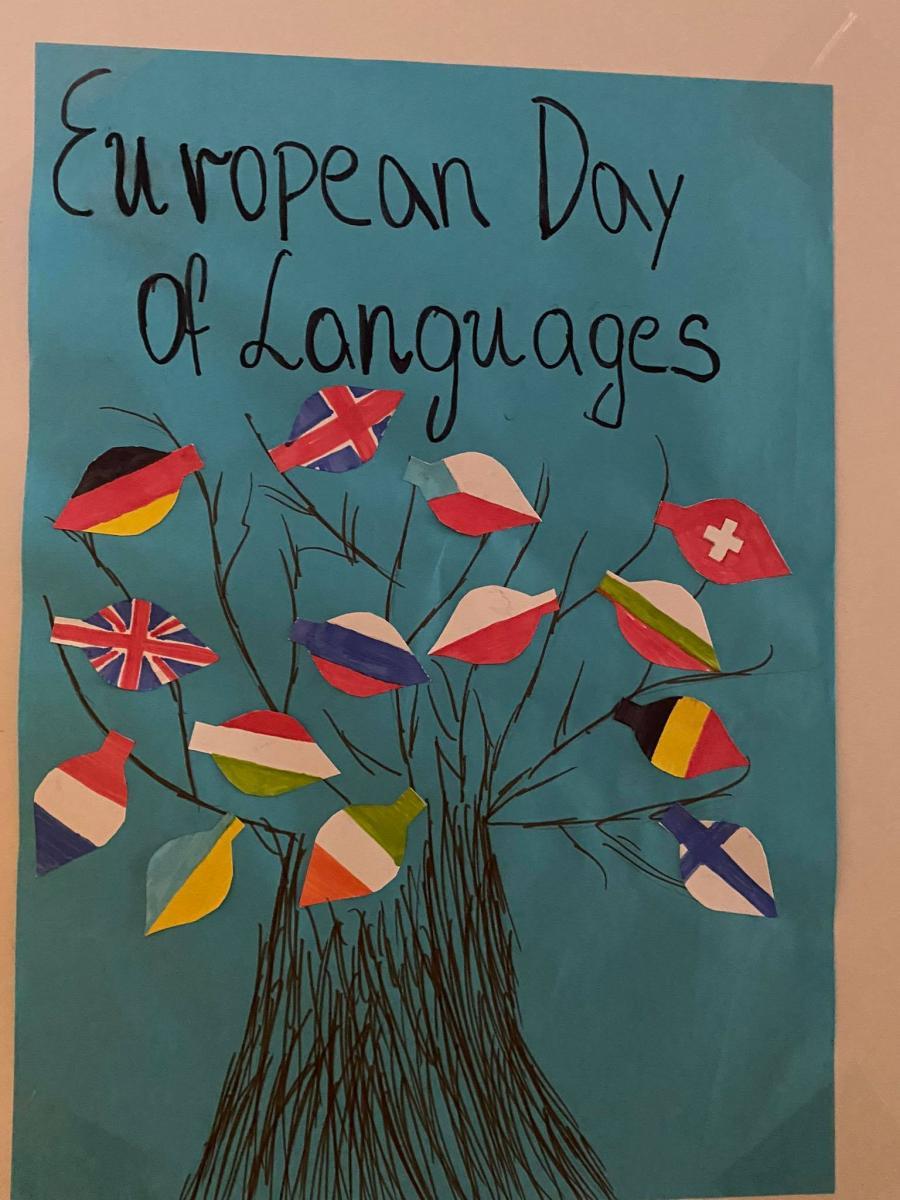 European Day
Of Languages